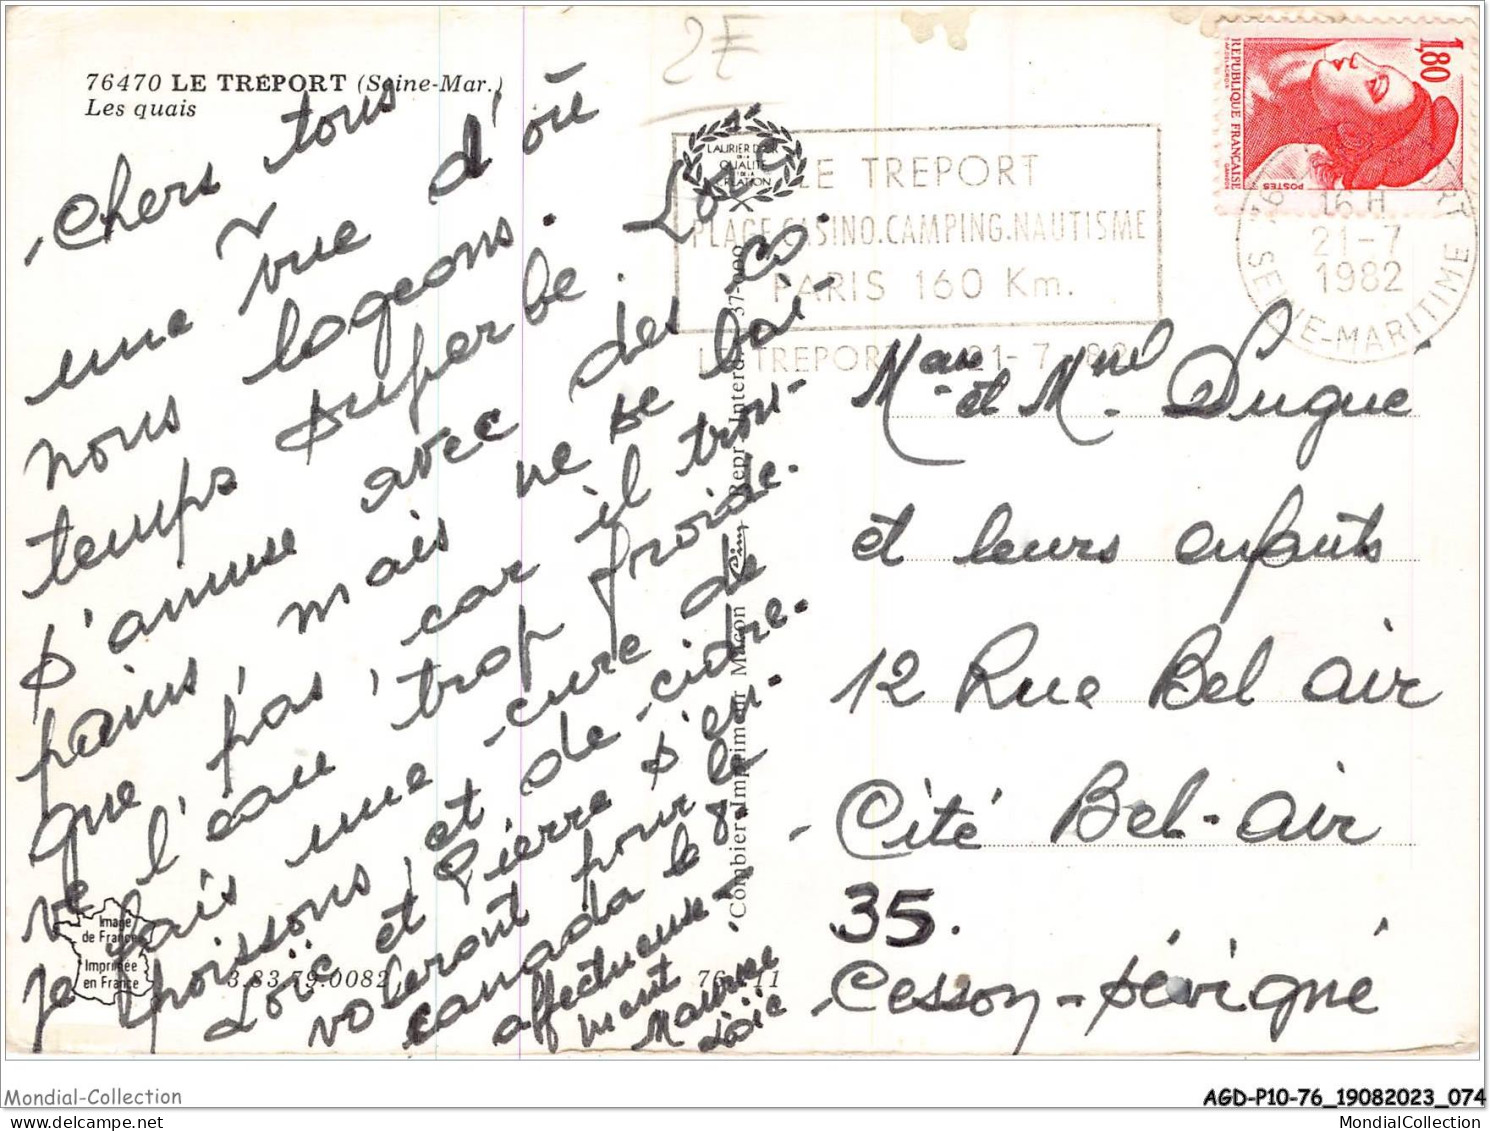 2F
76470 LE TRÉPORT (Seine-Mar.)
Les quais
Chers tous
une vue d'où
nous logeons.
temps superbe. Loïc
s'amuse avec des co-
pains, mais ne se bai-
gne pas, car il trou-
ve l'eau trop froide.
Je fais une cure de
poissons, et de cidre.
Loïc et Pierre s'en-
voleront pour le
canada le 8.
affectueuse-
ment
Maurice
Loïc
LAURIER D'OR
DE LA
QUALITÉ
DE LA
CRÉATION
LE TREPORT
PLAGE.CASINO.CAMPING.NAUTISME
PARIS 160 Km.
LE TREPORT 21-7 82
1,80
REPUBLIQUE FRANÇAISE
POSTES
16 H
21-7
1982
SEINE-MARITIME
Combier Imprimeur Macon Cim Repr. Interd. 37-000
Mr et Mme Dugué
et leurs enfants
12 Rue Bel air
Cité Bel-air
35.
Cesson-sévigné
Image
de France
Imprimée
en France
3.83.79.0082
Mondial-Collection
AGD-P10-76_19082023_074
MondialCollection